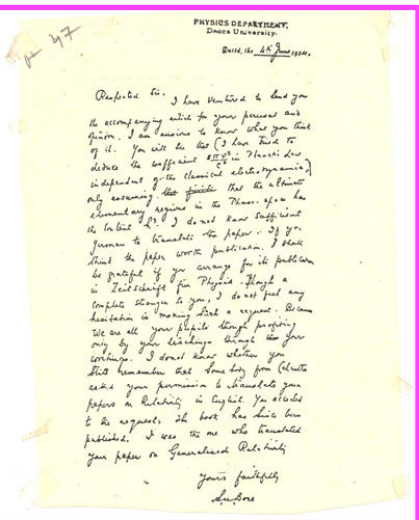 PHYSICS DEPARTMENT,
Dacca University.
Dated, the 4th June 1924.
Respected Sir, I have ventured to send you
the accompanying article for your perusal and
opinion. I am anxious to know what you think
of it. You will see that I have tried to
deduce the coefficient 8πν²/c³ in Planck's Law
independent of the classical electrodynamics,
only assuming that the ultimate
elementary regions in the Phase-space has
the content h³. I do not know sufficient
German to translate the paper. If you
think the paper worth publication, I shall
be grateful if you arrange for its publication
in Zeitschrift für Physik. Though a
complete stranger to you, I do not feel any
hesitation in making such a request. Because
we are all your pupils though profiting
only by your teachings through your
writings. I do not know whether you
still remember that somebody from Calcutta
asked your permission to translate your
papers on Relativity in English. You acceded
to the request. The book has since been
published. I was the one who translated
your paper on Generalised Relativity
Yours faithfully
S.N. Bose